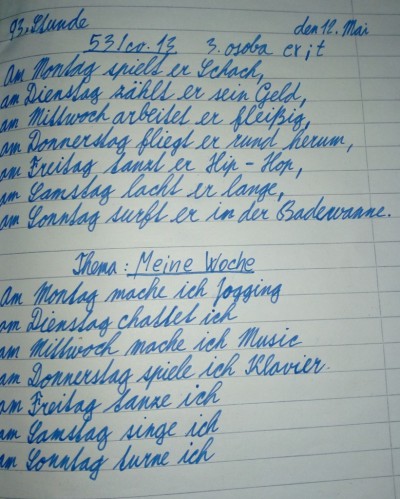 93. Stunde den 12. Mai
53 1 co. 13 3. osoba er; t
Am Montag spielt er Schach,
am Dienstag zählt er sein Geld,
am Mittwoch arbeitet er fleißig,
am Donnerstag fliegt er rund herum,
am Freitag tanzt er Hip - Hop,
am Samstag lacht er lange,
am Sonntag surft er in der Badewanne.
Thema: Meine Woche
Am Montag mache ich Jogging
am Dienstag chattet ich
am Mittwoch mache ich Music
am Donnerstag spiele ich Klavier.
am Freitag tanze ich
am Samstag singe ich
am Sonntag turne ich